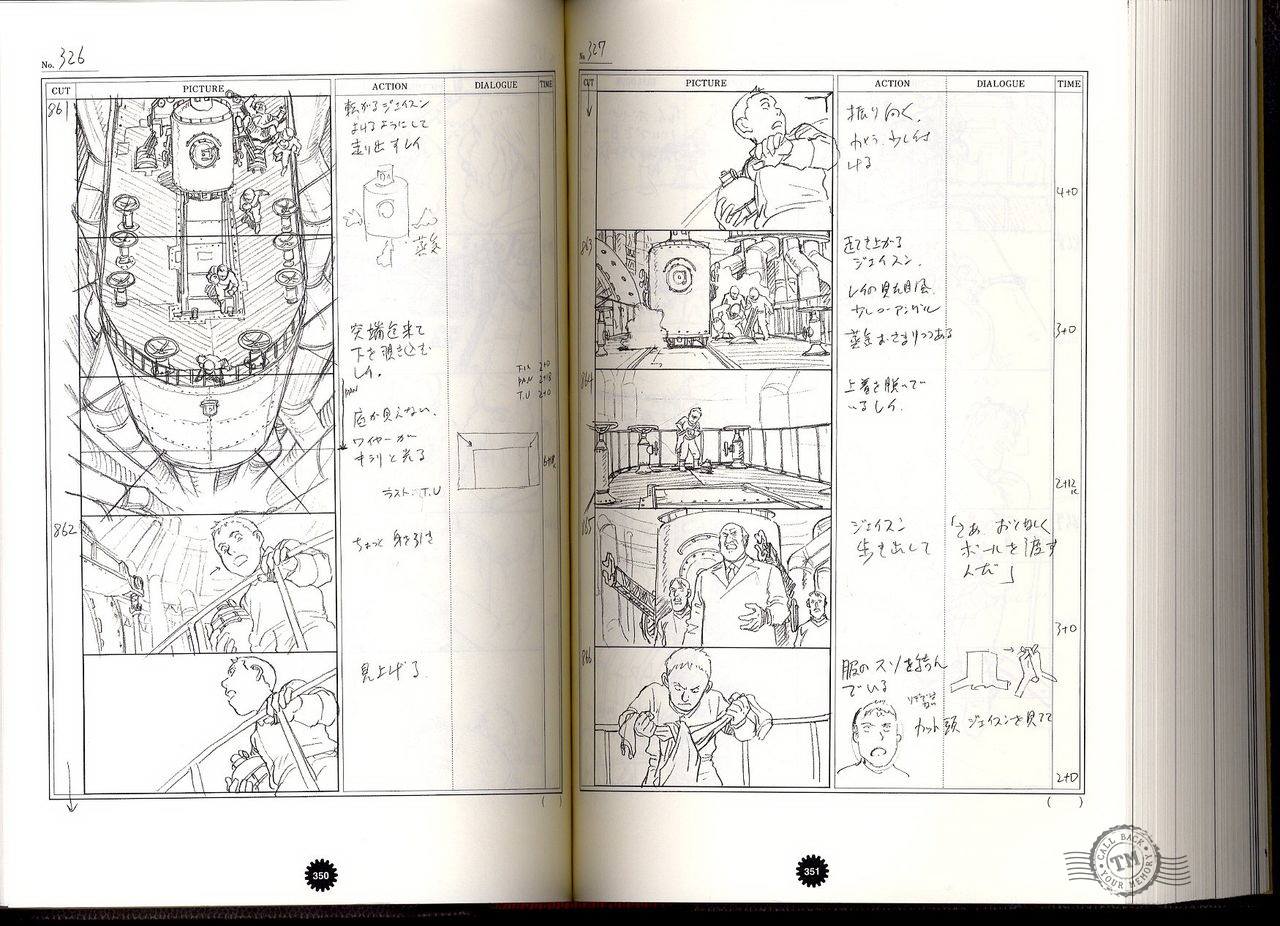 No. 326
CUT
PICTURE
ACTION
DIALOGUE
TIME
861
転がるジェイスン
よけるようにして
走り出すレイ
蒸気
突端迄来て
下を覗き込む
レイ。
PAN
底が見えない。
ワイヤーが
キラリと光る
ラスト T.U
T.U 2+0
862
ちょっと 身を引き
見上げる
( )
350
No. 327
CUT
PICTURE
ACTION
DIALOGUE
TIME
振り向く。
少し付
ける
4+0
863
立ち上がる
ジェイスン。
レイの見た目風。
少しローアングル
蒸気おさまりつつある
3+0
864
上着を脱いで
いるレイ。
2+12
865
ジェイスン
歩き出して
「さあ、おとなしく
ボールを渡す
んだ」
3+0
866
服のスソを結ん
でいる
カット頭 ジェイスンを見てて
2+0
( )
351
CALL BACK
TM
YOUR MEMORY